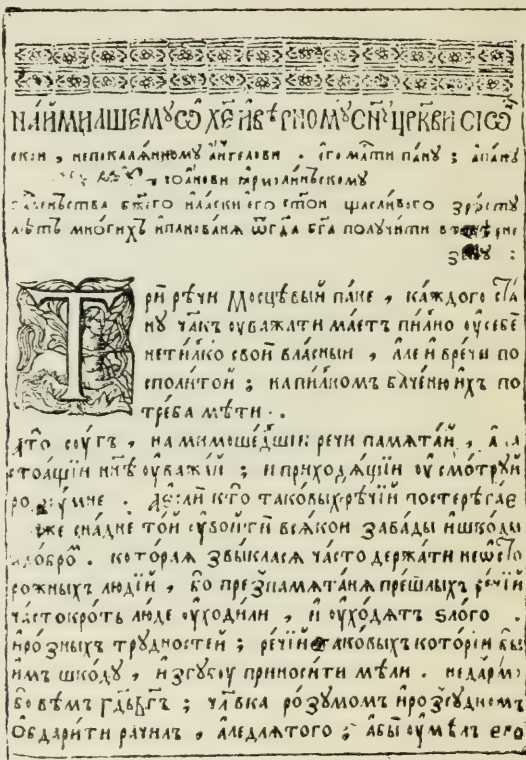 НАЙМИЛШЕМꙋ Сѡ ХЕ҃ ЙВѢРНОМꙋ СН҃ꙋ ЦРК҃ВИ СІѠ
скои , непокалѧнномꙋ а҆нгелови . его м҃ти панꙋ ; а҆панꙋ
іѡанови
бж҃его илѧски его ст҃ои щасливого
лѣтъ многихъ ипанованѧ ѡ҃гда бг҃а получити

Три рѣчи Мосцѣвый пане , каждого ста
нꙋ ч҃лкъ оуважати маетъ пилно оусебе
нетилко свои власныи , але и҆ вречи по
сполитой ; напилком баченю ихъ по
треба мѣти ..
а҆то соуть , на мимошедшіи речи памѧтай , а҆ а
стоащіи нн҃ѣ оуважай ; и҆ приходѧщіи оусмотрꙋй
розꙋмне . а҆если кто таковых рѣчій постерѣгае
же снадне той оувойти всѧкои завады и҆шкоды
доброⷨ . котораѧ звыкласѧ часто держати неѡ҃сто
рожных людій , бо презнамѧтанѧ прешлых рѣчій
частокроть люде оуходили , и҆ оуходѧтъ ѕлого .
и҆розных трꙋдностей ; речій таковых которіи бы
имъ шкодꙋ , и҆згꙋбоу приносити мѣли . недарм
бо вѣмъ ; чл҃вка розꙋмомъ и҆розсꙋдномъ
Обдарити рачилъ , аледлѧтого ; а҆бы оумѣлъ его